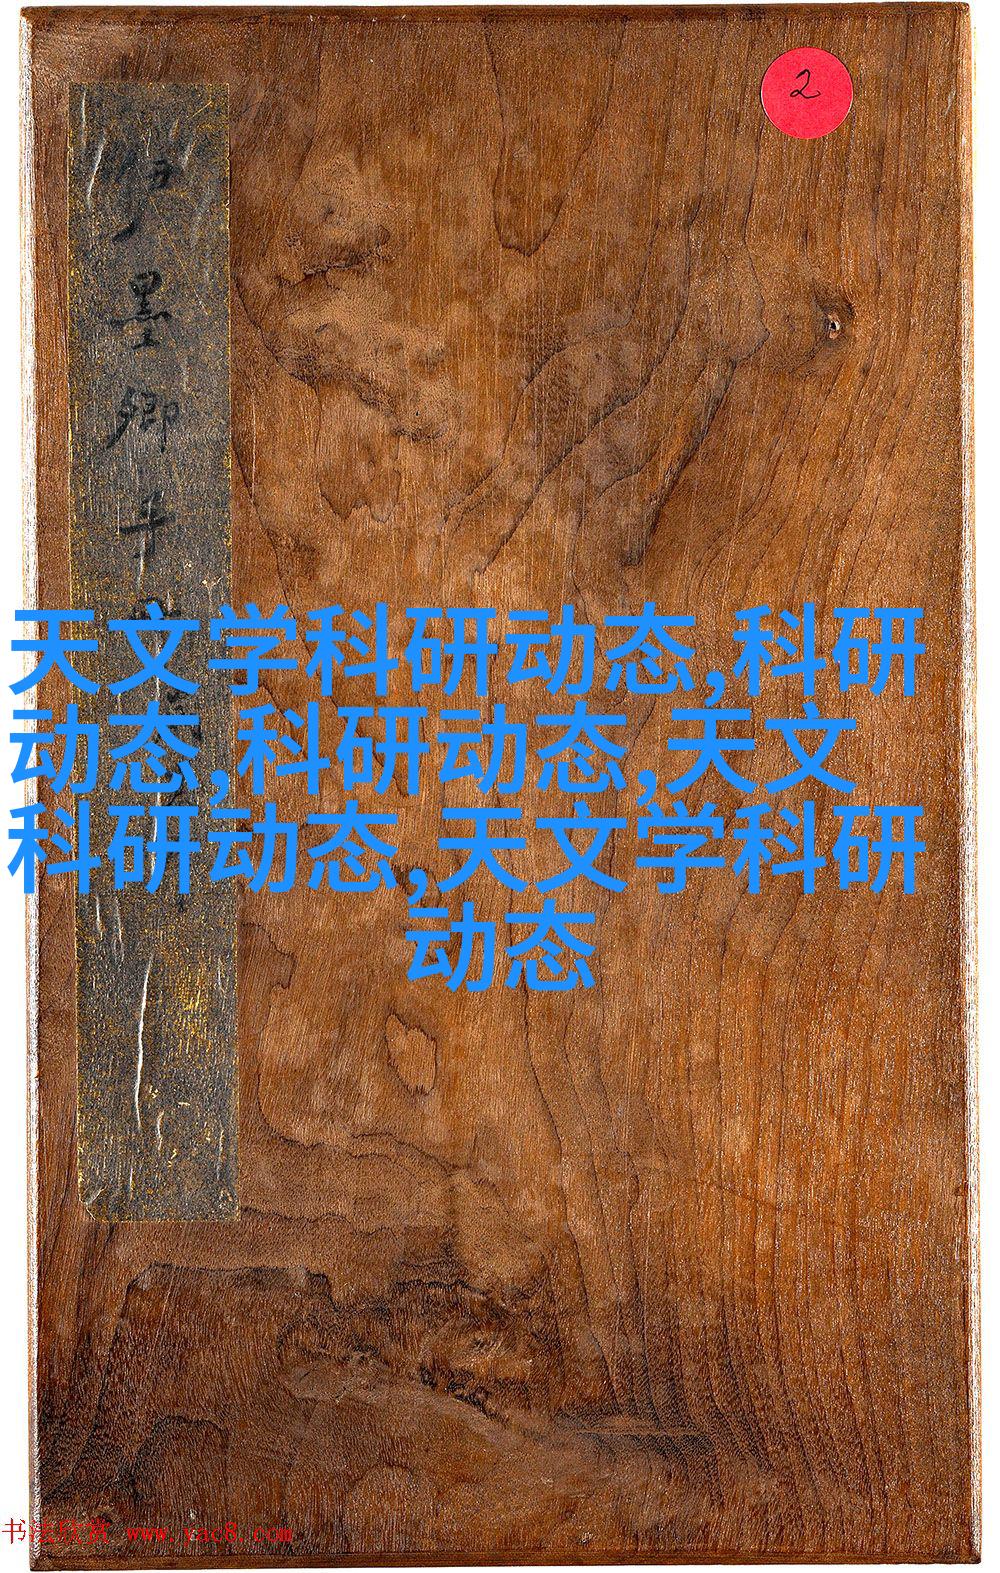 2
墨卿手
天文学科研动态,科研
动态,科研动态,天文
科研动态,天文学科研
动态
书法欣赏 www.yac8.com